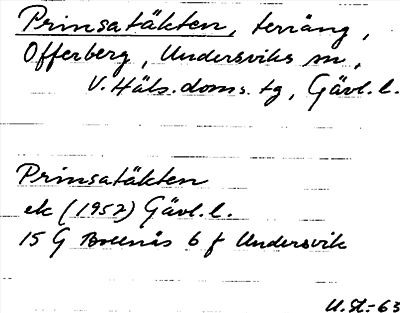 Prinsatäkten, terräng,
Offerberg, Undersviks sn,
V. Häls. doms. tg, Gävl. l.
Prinsatäkten
ek (1952) Gävl. l.
15 G Breenås 6 f Undersvik
U.St.-63